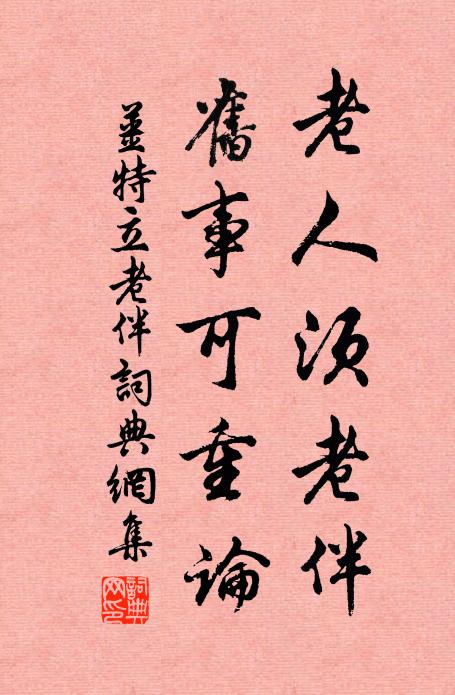 老人須老伴
舊事可重論
姜特立老伴詞典網集
詞典網印